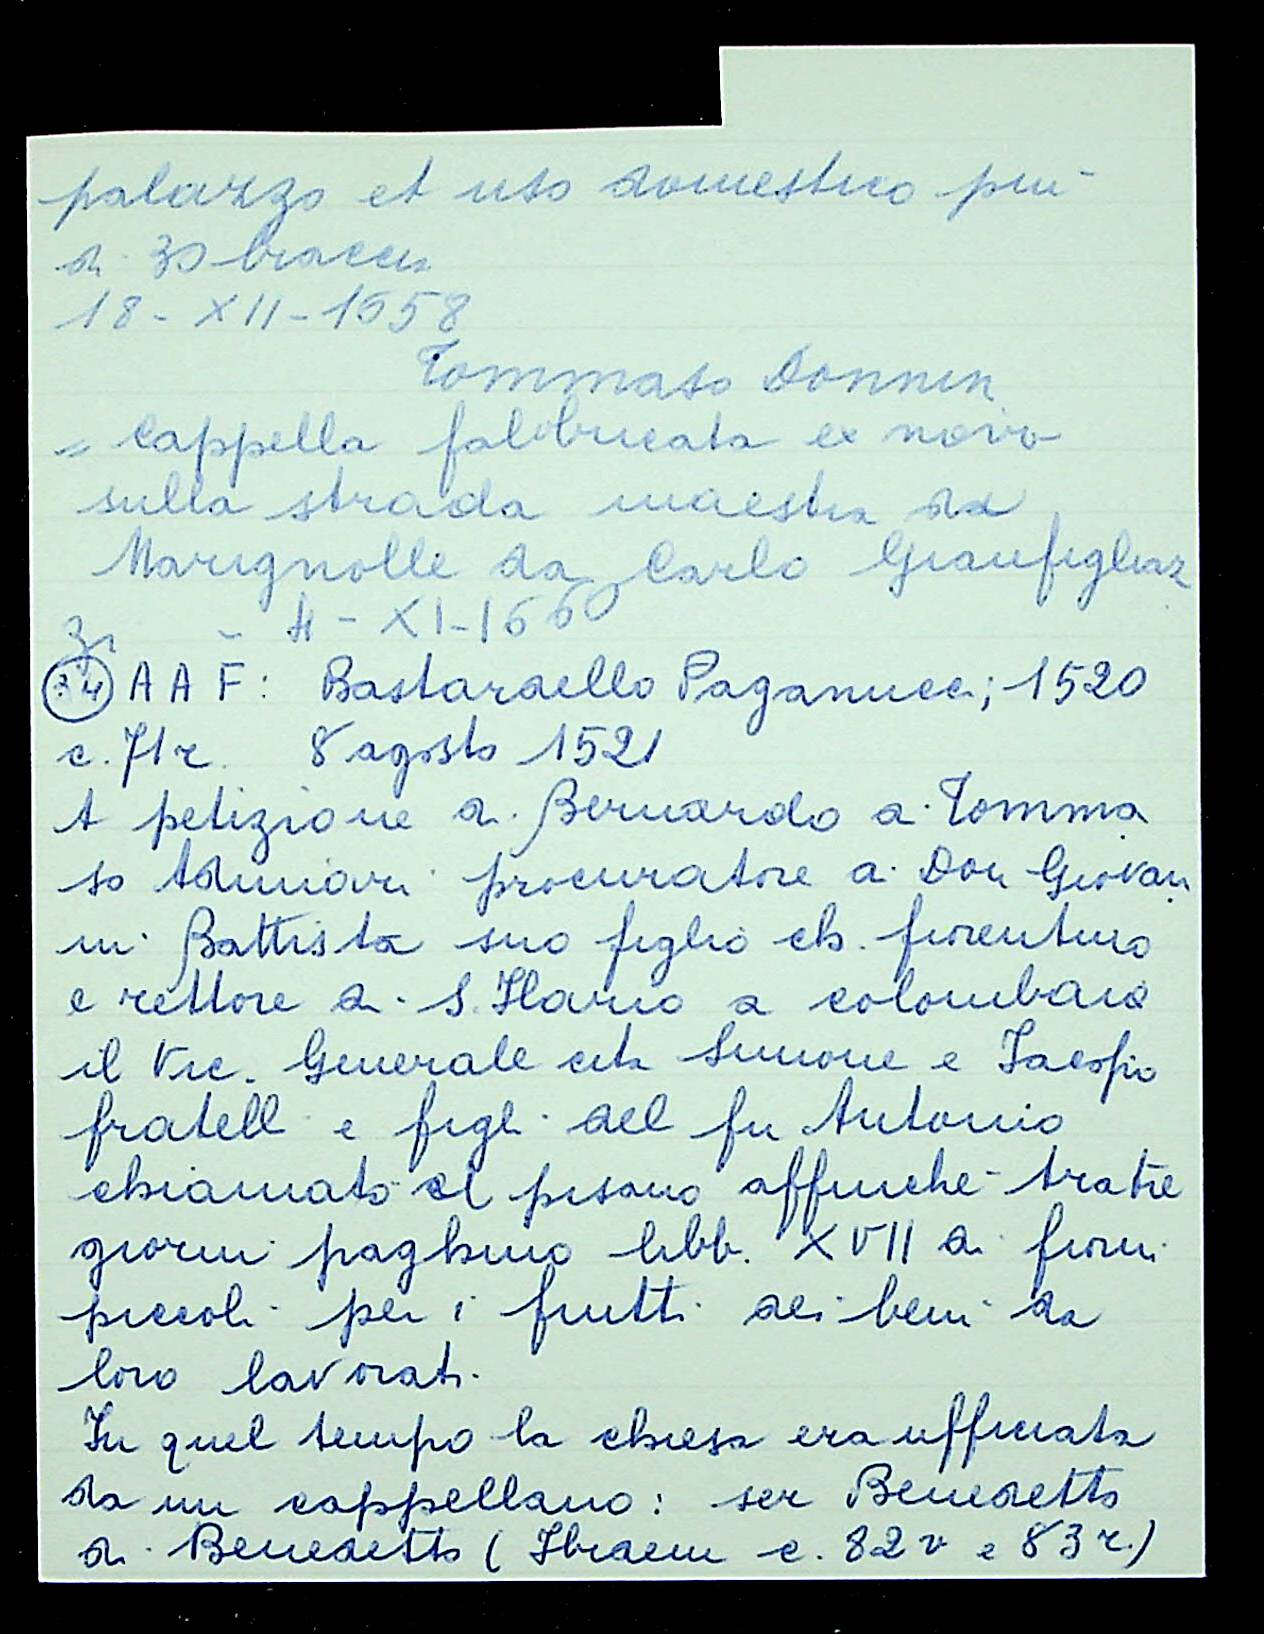 palazzo et uso domestico più
di 30 braccia
18-XII-1658
Tommaso Donnini
= Cappella fabbricata ex novo
sulla strada maestra da
Marignolle da Carlo Gianfigliaz
zi - 4-XI-1660
34 A A F: Bastardello Paganucci; 1520
c. 71r. 8 agosto 1521
A petizione di Bernardo di Tomma
so procuratore di Don Giovan
ni Battista suo figlio ch. fiorentino
e rettore di S. Ilario a colombaia
il Vic. Generale cita Simone e Iacopo
fratelli e figli del fu Antonio
chiamato el pisano affinché tra tre
giorni paghino libb. XVII di fiorini
piccoli per i frutti dei beni da
loro lavorati.
In quel tempo la chiesa era ufficiata
da un cappellano: ser Benedetto
di Benedetto (Ibidem c. 82v e 83r.)